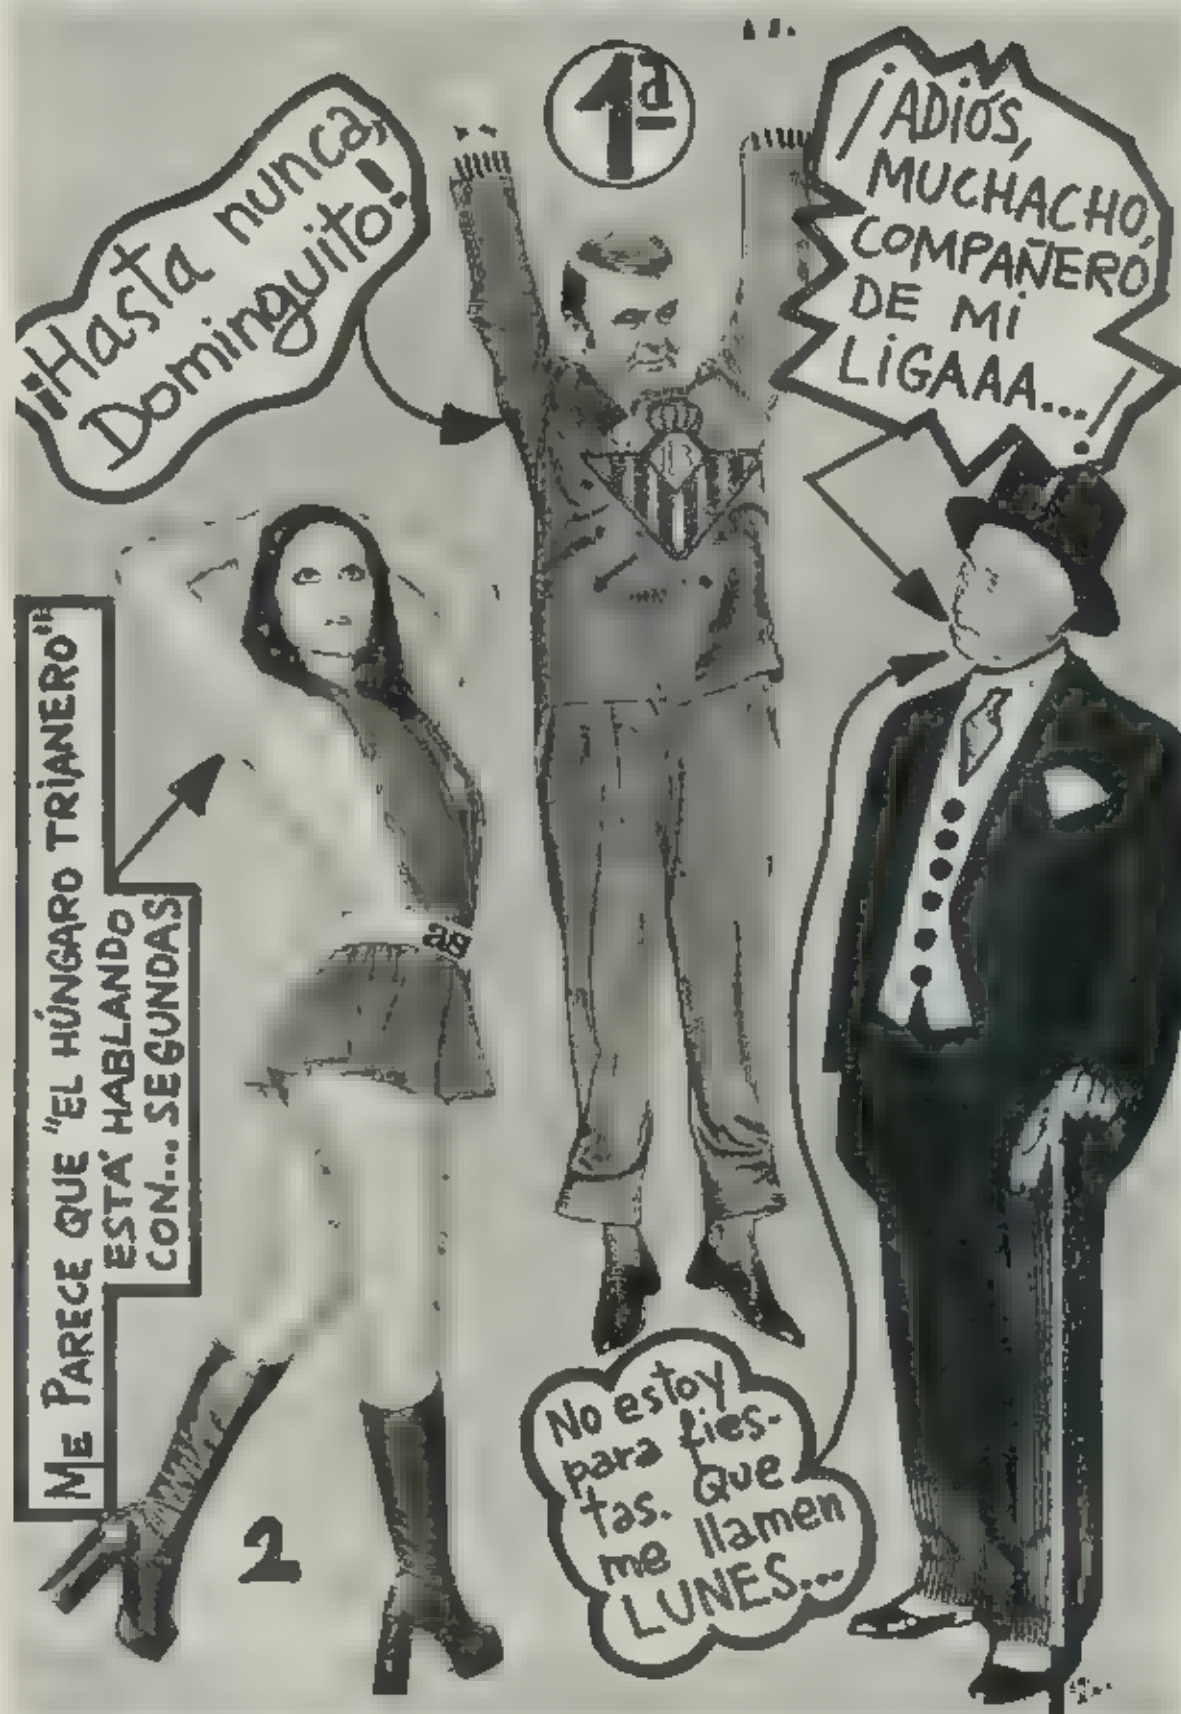 ¡Hasta nunca,
Dominguito!
1ª
¡ADIÓS,
MUCHACHO,
COMPAÑERO
DE MI
LIGAAA...!
ME PARECE QUE "EL HÚNGARO TRIANERO"
ESTÁ HABLANDO
CON... SEGUNDAS
2
No estoy
para fies-
tas. Que
me llamen
LUNES...